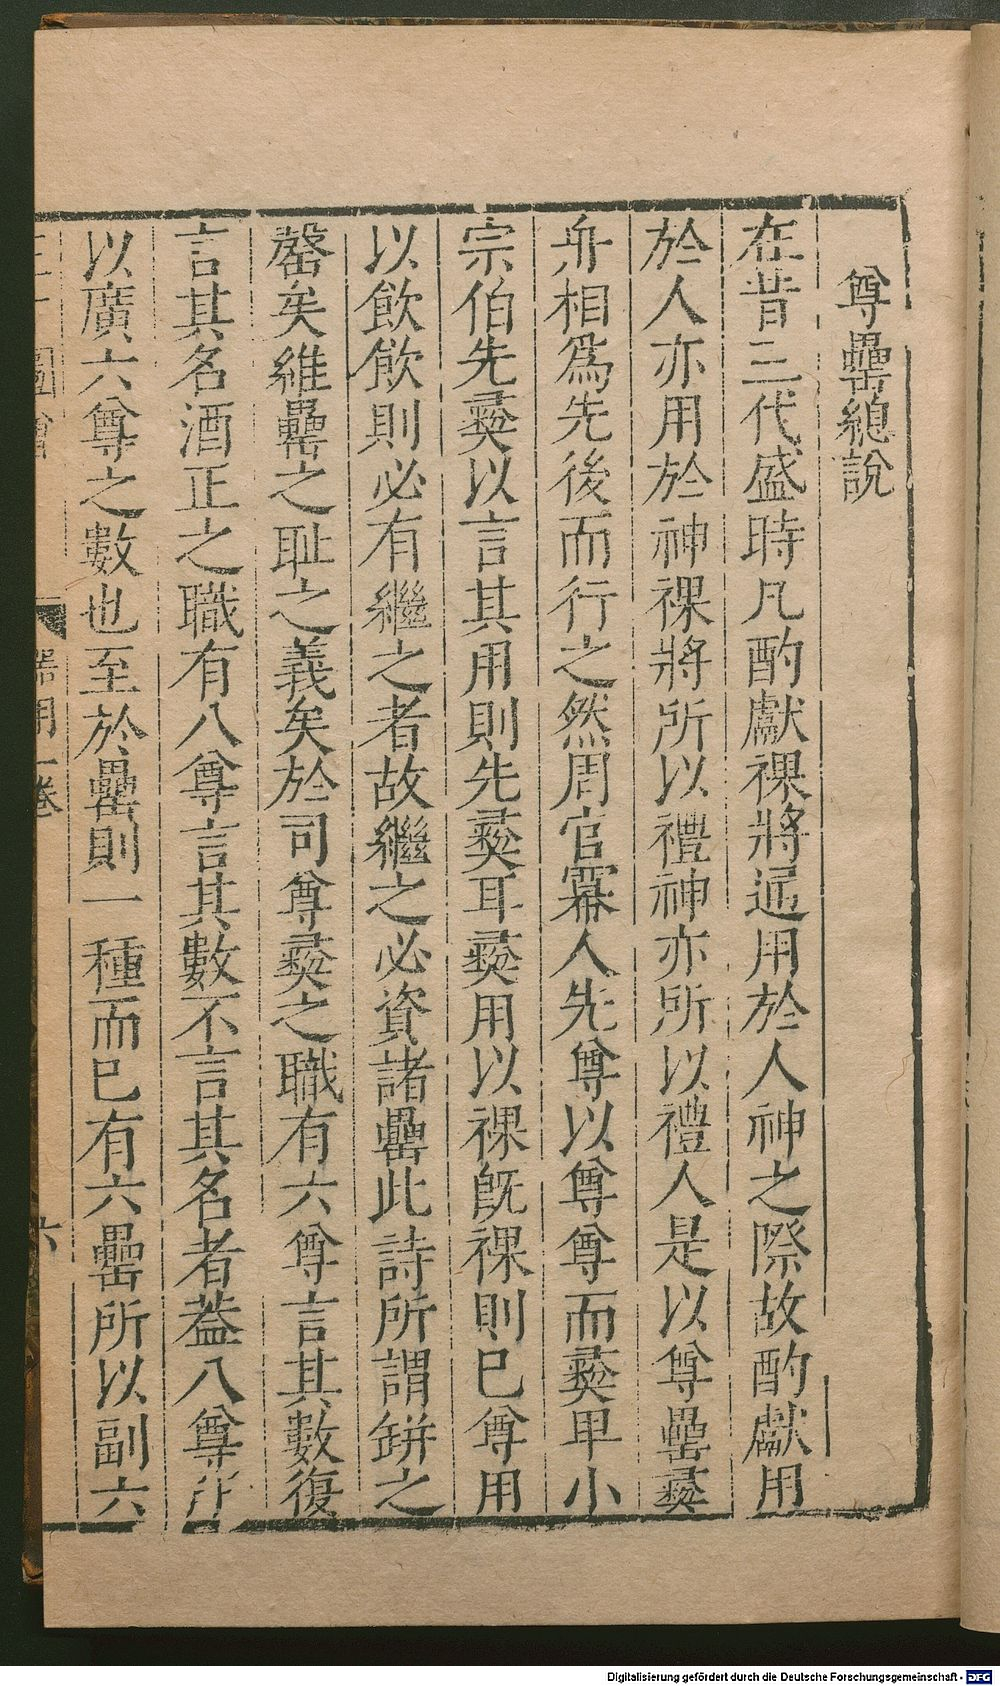 尊罍總說
在昔三代盛時凡酌獻祼將通用於人神之際故酌獻用
於人亦用於神祼將所以禮神亦所以禮人是以尊罍彝
舟相爲先後而行之然周官冪人先尊以尊尊而彝卑小
宗伯先彝以言其用則先彝耳彝用以祼旣祼則已尊用
以飲飲則必有繼之者故繼之必資諸罍此詩所謂缾之
罄矣維罍之耻之義矣於司尊彝之職有六尊言其數復
言其名酒正之職有八尊言其數不言其名者葢八尊所
以廣六尊之數也至於罍則一種而已有六罍所以副六
三才圖會
器用一卷
六
Digitalisierung gefördert durch die Deutsche Forschungsgemeinschaft - DFG